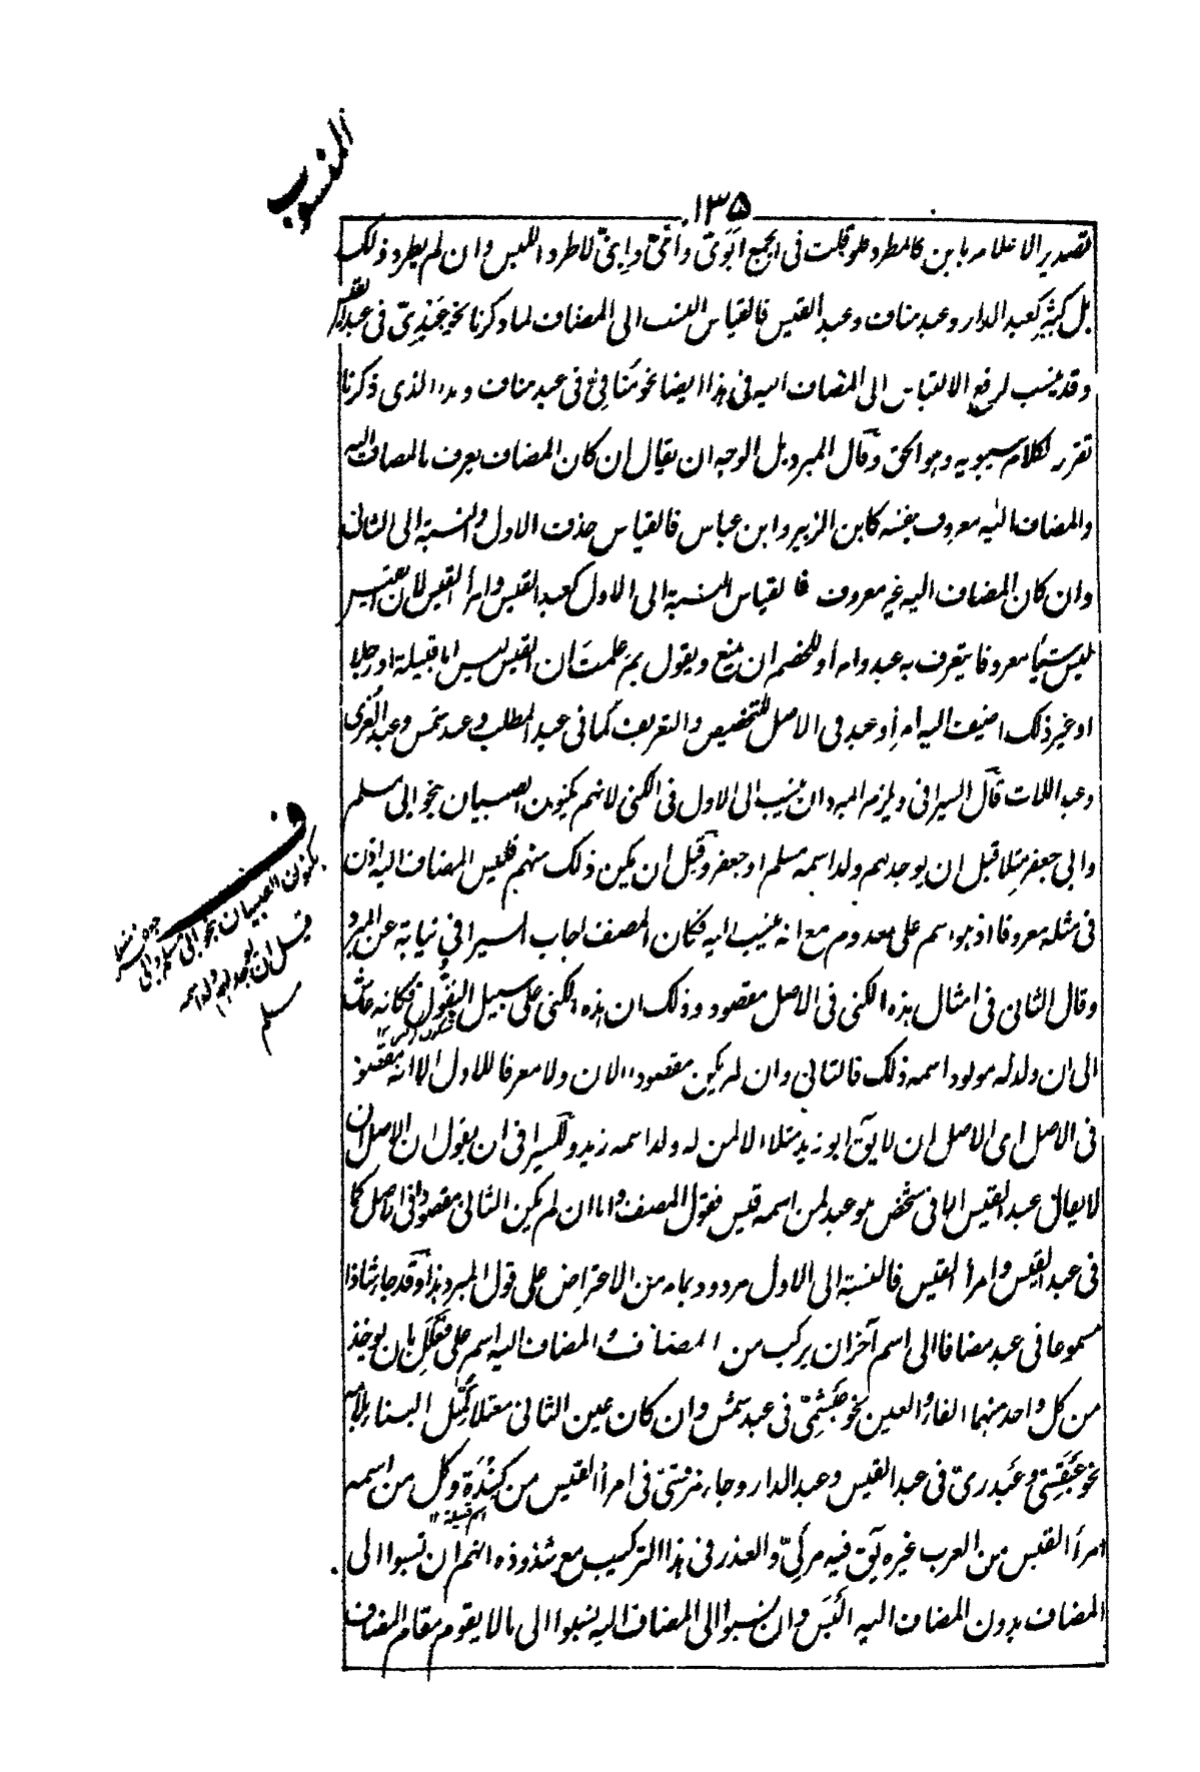 المنسوب
۱۳۵
تصدير الاعلام بابن كالمطرد فلو قلت فى الجميع ابوىّ وأمىّ وابنىّ لاطرد اللبس وان لم يطرد ذلك
بل كثر كعبد الدار وعبد مناف وعبد القيس فالقياس النسب الى المضاف لما ذكرنا نحو عَبْدِىّ فى عبد القيس
وقد ينسب لرفع الالتباس الى المضاف اليه فى هذا ايضا نحو مَنافىّ فى عبد مناف وهذا الذى ذكرنا
تقرير لكلام سيبويه وهو الحق وقال المبرد بل الوجه ان يقال ان كان المضاف يعرف بالمضاف اليه
والمضاف اليه معروف بنفسه كابن الزبير وابن عباس فالقياس حذف الاول والنسبة الى الثانى
وان كان المضاف اليه غير معروف فالقياس النسبة الى الاول كعبد القيس وامرأ القيس لان القيس
ليس شيئا معروفا يتعرف به عبد وامرأ وللخصم ان يمنع ويقول بم علمت ان القيس ليس اما قبيلة او رجلا
او غير ذلك اضيف اليه امرأ وعبد فى الاصل للتخصيص والتعريف كما فى عبد المطلب وعبد شمس وعبد العزى
وعبد اللات قال السيرافى ويلزم المبرد ان ينسب الى الاول فى الكنى لانهم يكنون الصبيان بنحو ابى مسلم
وابى جعفر مثلا قبل ان يوجد لهم ولد اسمه مسلم او جعفر وقبل ان يمكن ذلك منهم فليس المضاف اليه اذن
فى مثله معروفا اذ هو اسم على معدوم مع انه ينسب اليه فكان المصنف اجاب السيرافى نيابة عن المبرد
وقال الثانى فى امثال هذه الكنى فى الاصل مقصود وذلك ان هذه الكنى على سبيل التفول فكانه عاش
الى ان ولد له مولود اسمه ذلك فالثانى وان لم يكن مقصودا الان ولا معرفا للاول الا انه مقصود
فى الاصل اى الاصل ان لا يق ابو زيد مثلا الا لمن له ولد اسمه زيد وللسيرافى ان يقول ان الاصل ان
لا يقال عبد القيس الا فى شخص هو عبد لمن اسمه قيس فقول المصنف واما ان لم يكن الثانى مقصودا فى الاصل كما
فى عبد القيس وامرأ القيس فالنسبة الى الاول مردود بما مر من الاعتراض على قول المبرد هذا وقد جاء شاذا
مسموعا فى عبد مضافا الى اسم آخر ان يركب من المضاف والمضاف اليه اسم على فَعْلَلٍ بان يوخذ
من كل واحد منهما الفاء والعين نحو عَبْشَمِىّ فى عبد شمس وان كان عين الثانى معتلا كمّل البناء بلامه
نحو عَبْقَسِىّ وعَبْدرىّ فى عبد القيس وعبد الدار وجاء مرقسىّ فى امرأ القيس من كِنْدَة وكل من اسمه
اسم قبيلة
امرأ القيس من العرب غيره يق فيه مرئىّ والعذر فى هذا التركيب مع شذوذه انهم ان نسبوا الى
المضاف بدون المضاف اليه التبس وان نسبوا الى المضاف اليه نسبوا الى ما لا يقوم مقام المضاف
ف
يكنون الصبيان بنحو ابى مسلم وابى
قبل ان يوجد لهم ولد اسمه
مسلم